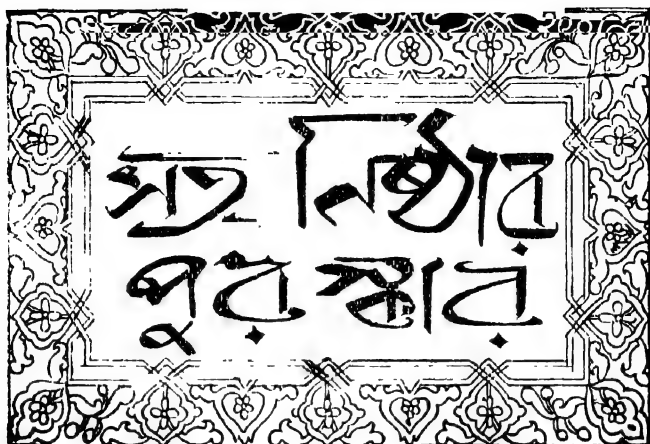 সত্য নিষ্ঠার
পুরস্কার